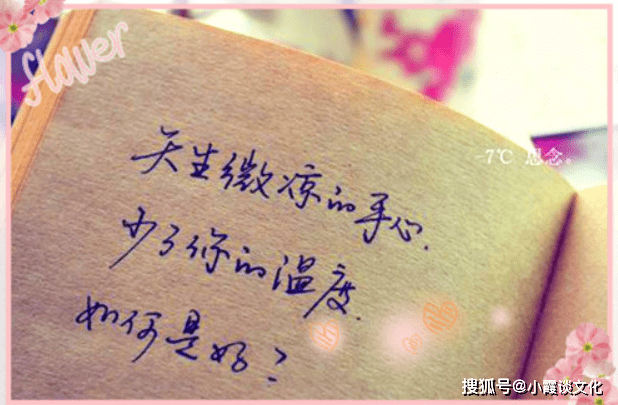 flower
-7℃ 思念。
天生微凉的手心.
少了你的温度.
如何是好?
搜狐号@小霞谈文化